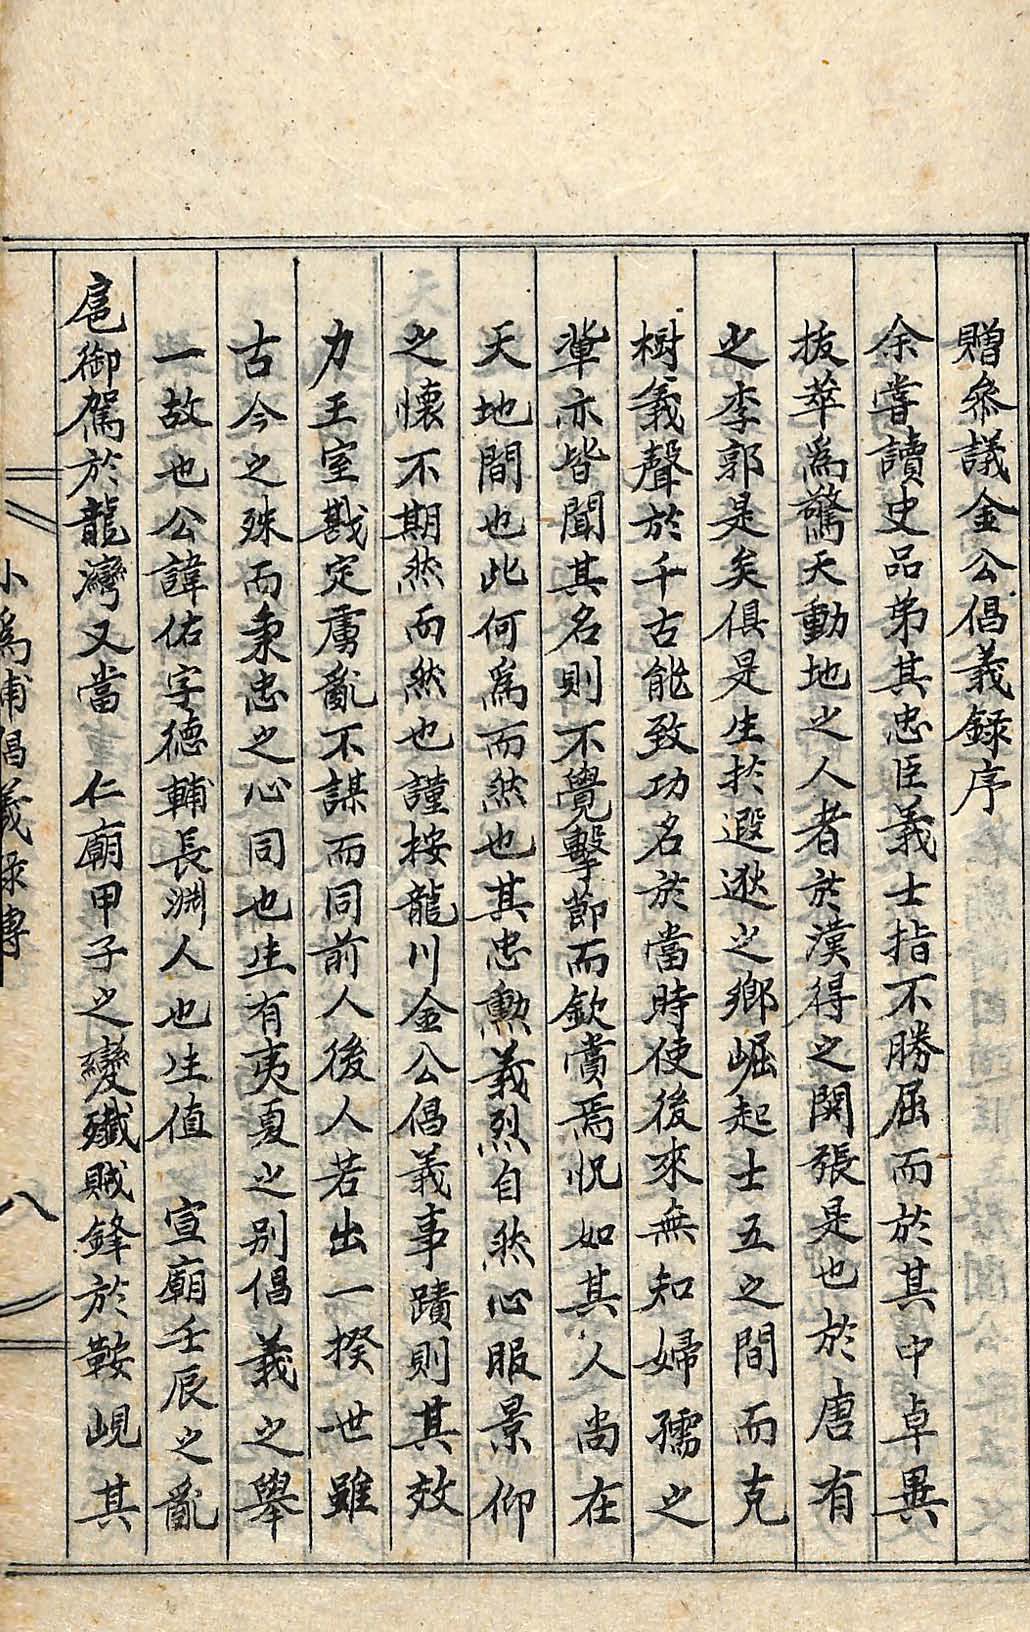 贈叅議金公倡義録序
余嘗讀史品苐其忠臣義士指不勝屈而於其中卓異
拔萃爲驚天動地之人者於漢得之関張是也於唐有
之李郭是矣俱是生扵遐逖之鄉崛起士五之間而克
樹義聲於千古能致功名於當時使後來無知婦孺之
軰亦皆聞其名則不覺擊節而欽賞焉怳如其人尚在
天地間也此何爲而然也其忠勲義烈自然心服景仰
之懐不期然而然也謹按龍川金公倡義事蹟則其效
力王室戡定虜亂不謀而同前人後人若出一揆世雖
古今之殊而秉忠之心同也生有夷夏之别倡義之舉
一故也公諱佑字德輔長淵人也生值宣廟壬辰之亂
扈御駕於龍灣又當仁廟甲子之變殲賊鋒於鞍峴其
小爲浦倡義録傳
八